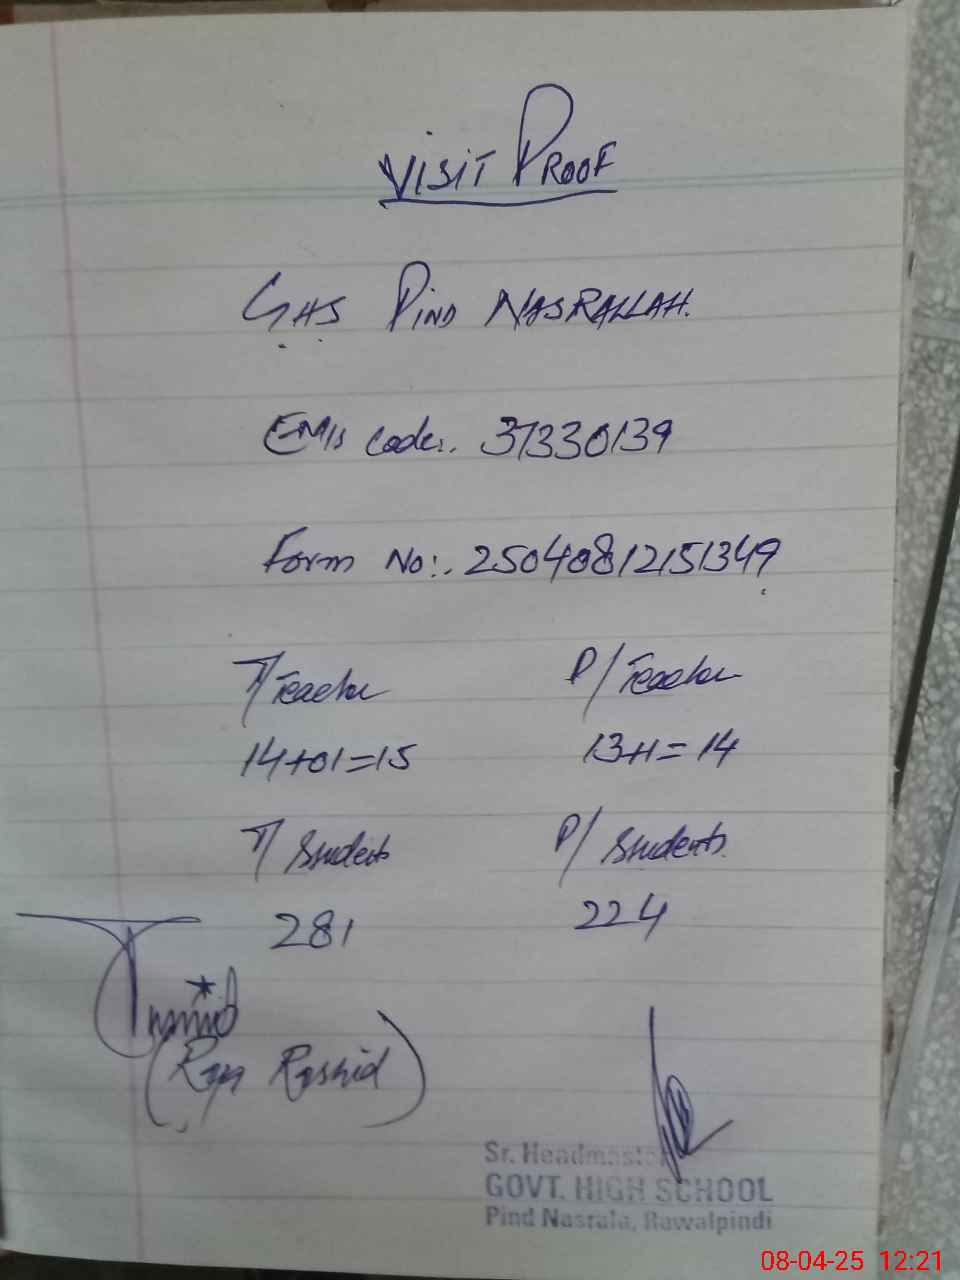 VISIT PROOF
GHS PIND NASRALLAH.
EMIS code:. 37330139
Form No:. 25040812151349
T/Teacher P/Teacher
14+01=15 13+1=14
T/Students P/Students
281 224
(Raja Rashid)
Sr. Headmaster
GOVT. HIGH SCHOOL
Pind Nasrala, Rawalpindi
08-04-25 12:21